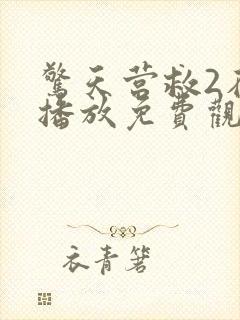 驚天營救2在
播放免費觀
衣青箬